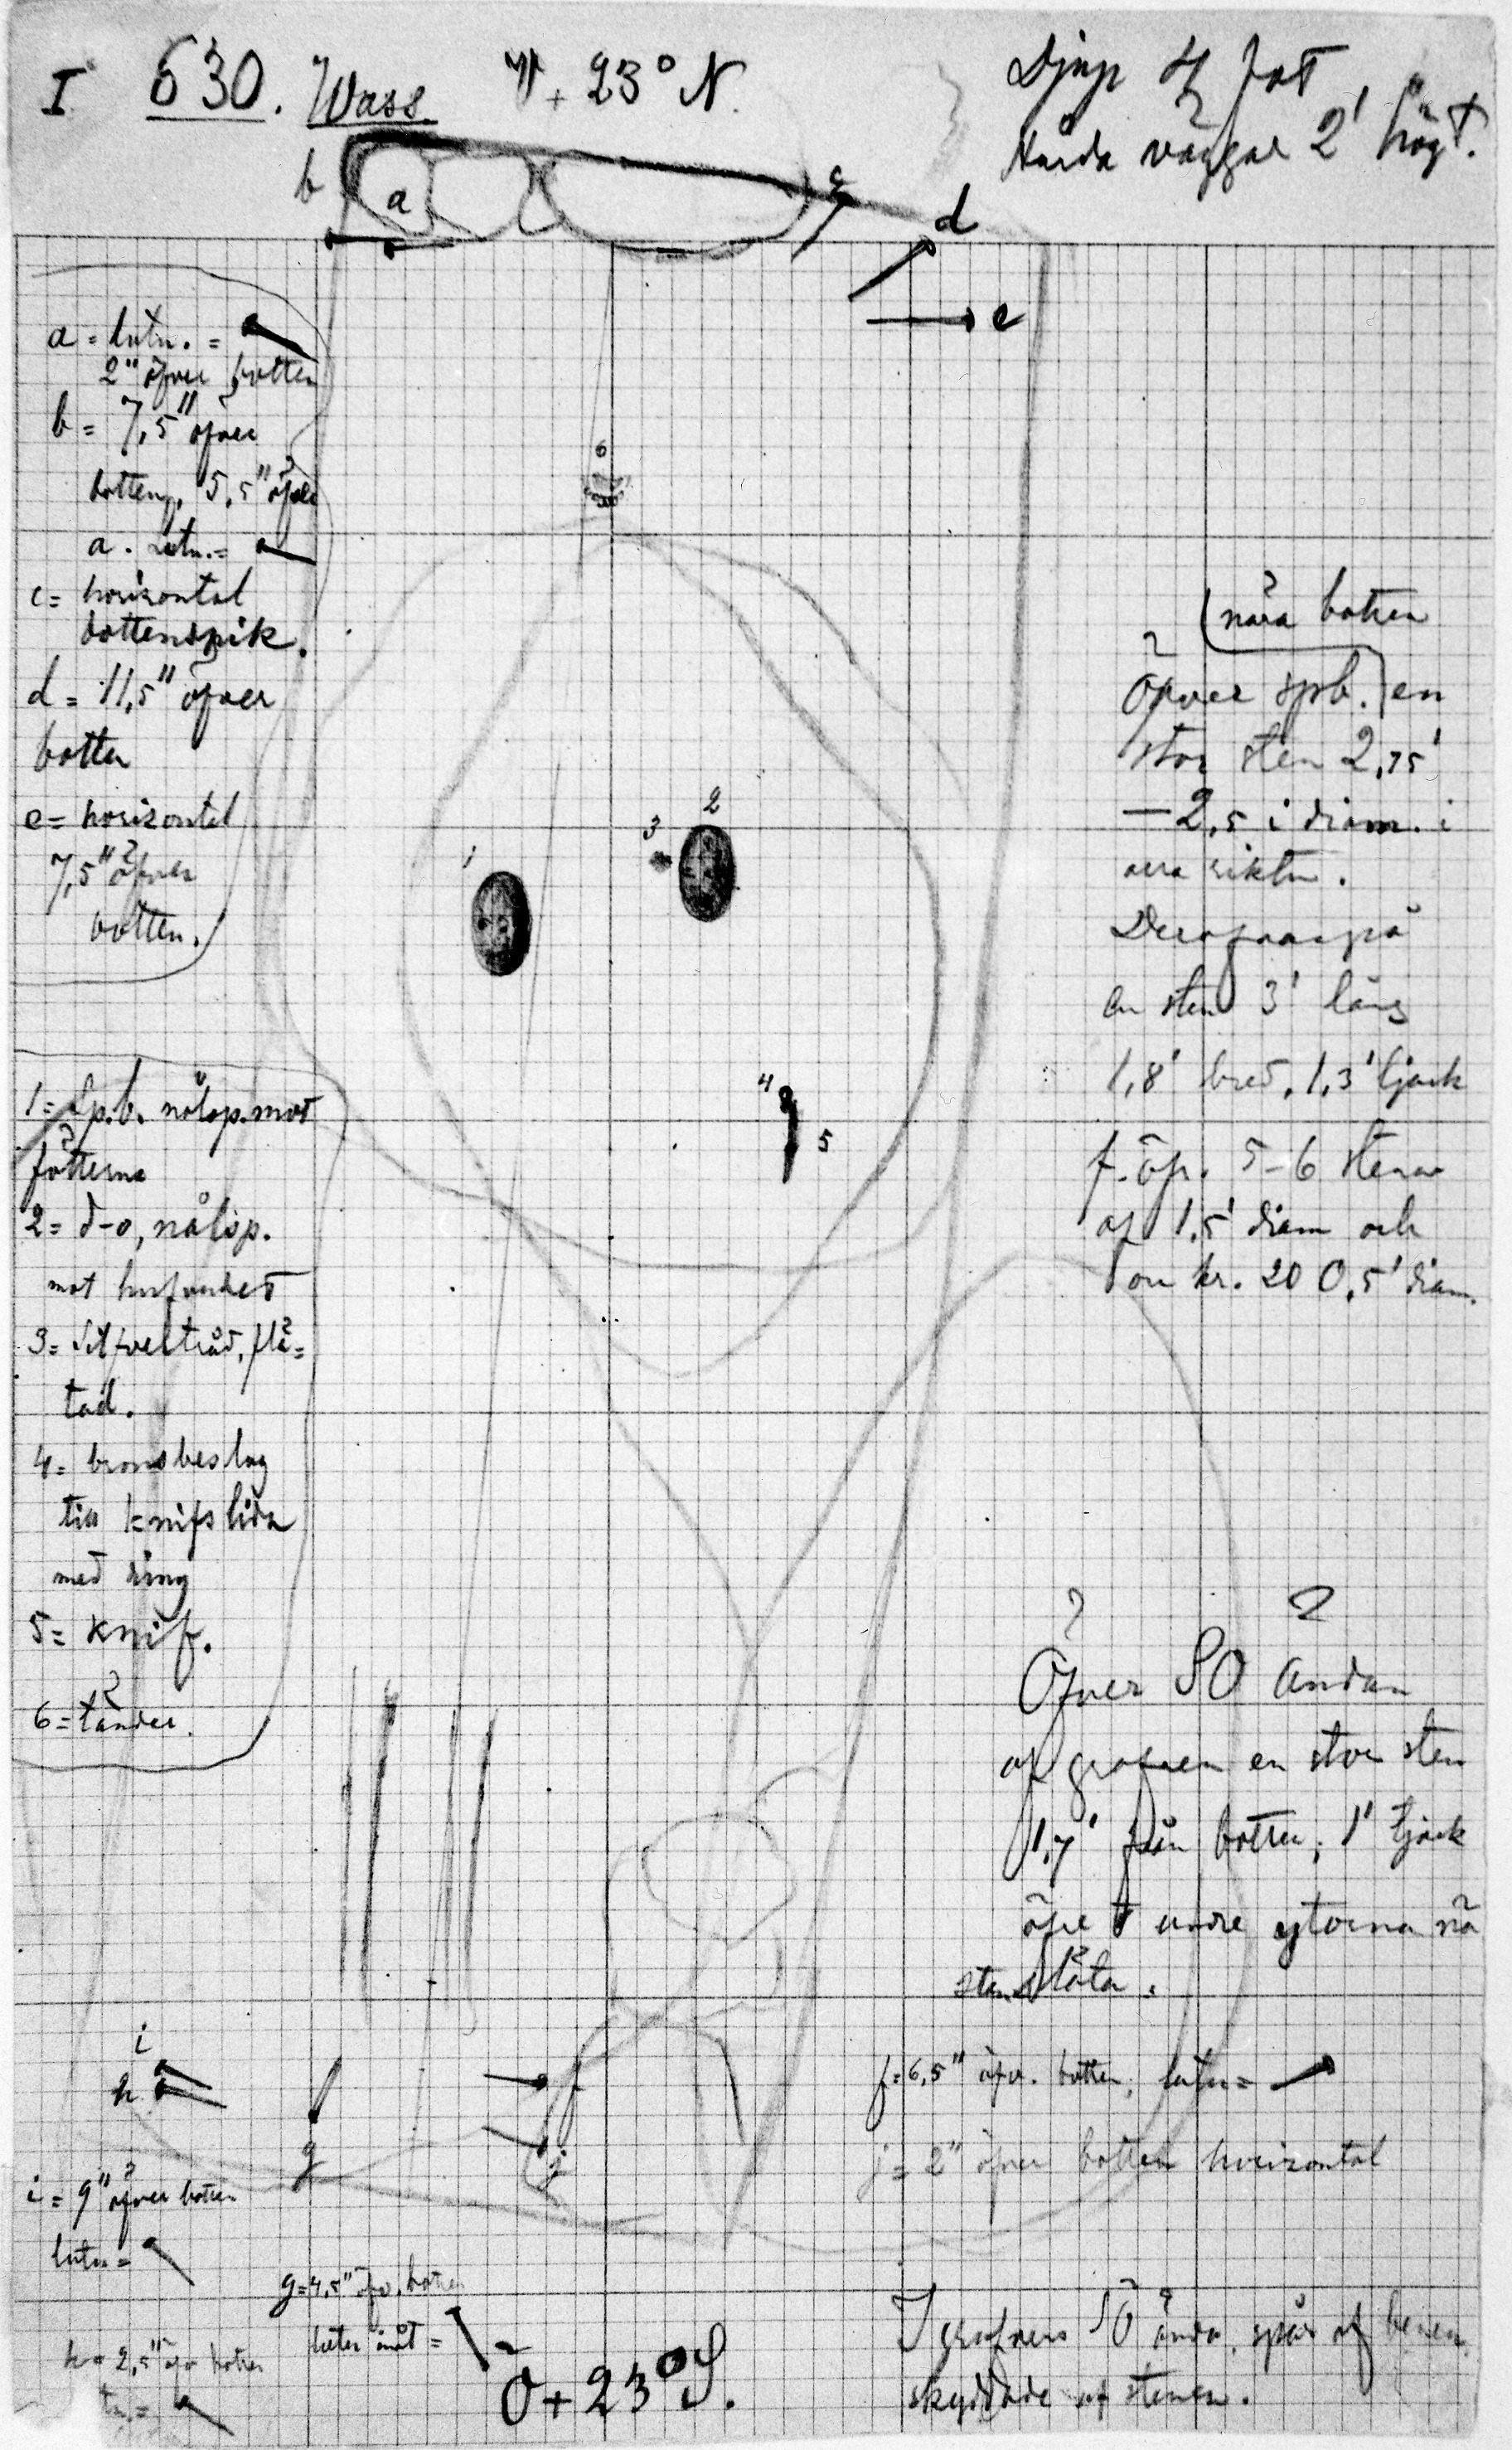 I 630. Wass. V + 23° N.
Djup 4 fot
Hårda väggar 2' högt.
b
a
c
d
e
a = lutn. =
2" öfver botten
b = 7,5" öfver
botten, 5,5" öfver
a. lutn. =
c = horizontal
bottenspik.
d = 11,5" öfver
botten
e = horizontal
7,5" öfver
botten.
6
1
3
2
4
5
(nära botten
Öfver spb.) en
stor sten 2,75'
— 2,5 i diam. i
riktn.
Derofvanpå
en sten 3' lång
1,8' bred, 1,3' tjock
f. öfr. 5-6 stenar
af 1,5' diam och
om kr. 20 0,5' diam.
1 = Sp.b. nålsp. mot
fötterna
2 = d-o, nålsp.
mot hufvudet
3 = Silfvertråd, flä-
tad.
4 = bronsbeslag
till knifslida
med ring
5 = Knif.
6 = tänder.
Öfver SO ändan
af grafven en stor sten
1,7' från botten, 1' tjock
öfre o undre ytorna nä
stan släta.
i
h
g
f
j
f = 6,5" öfv. botten, lutn =
j = 2" öfver botten horizontal
i = 9" öfver botten
lutn =
g = 4,5" öfv. botten
lutar inåt =
h = 2,5" öfv botten
tn. =
Ö + 23° S.
I grafvens SO ända, spår af benen,
skyddade af stenen.